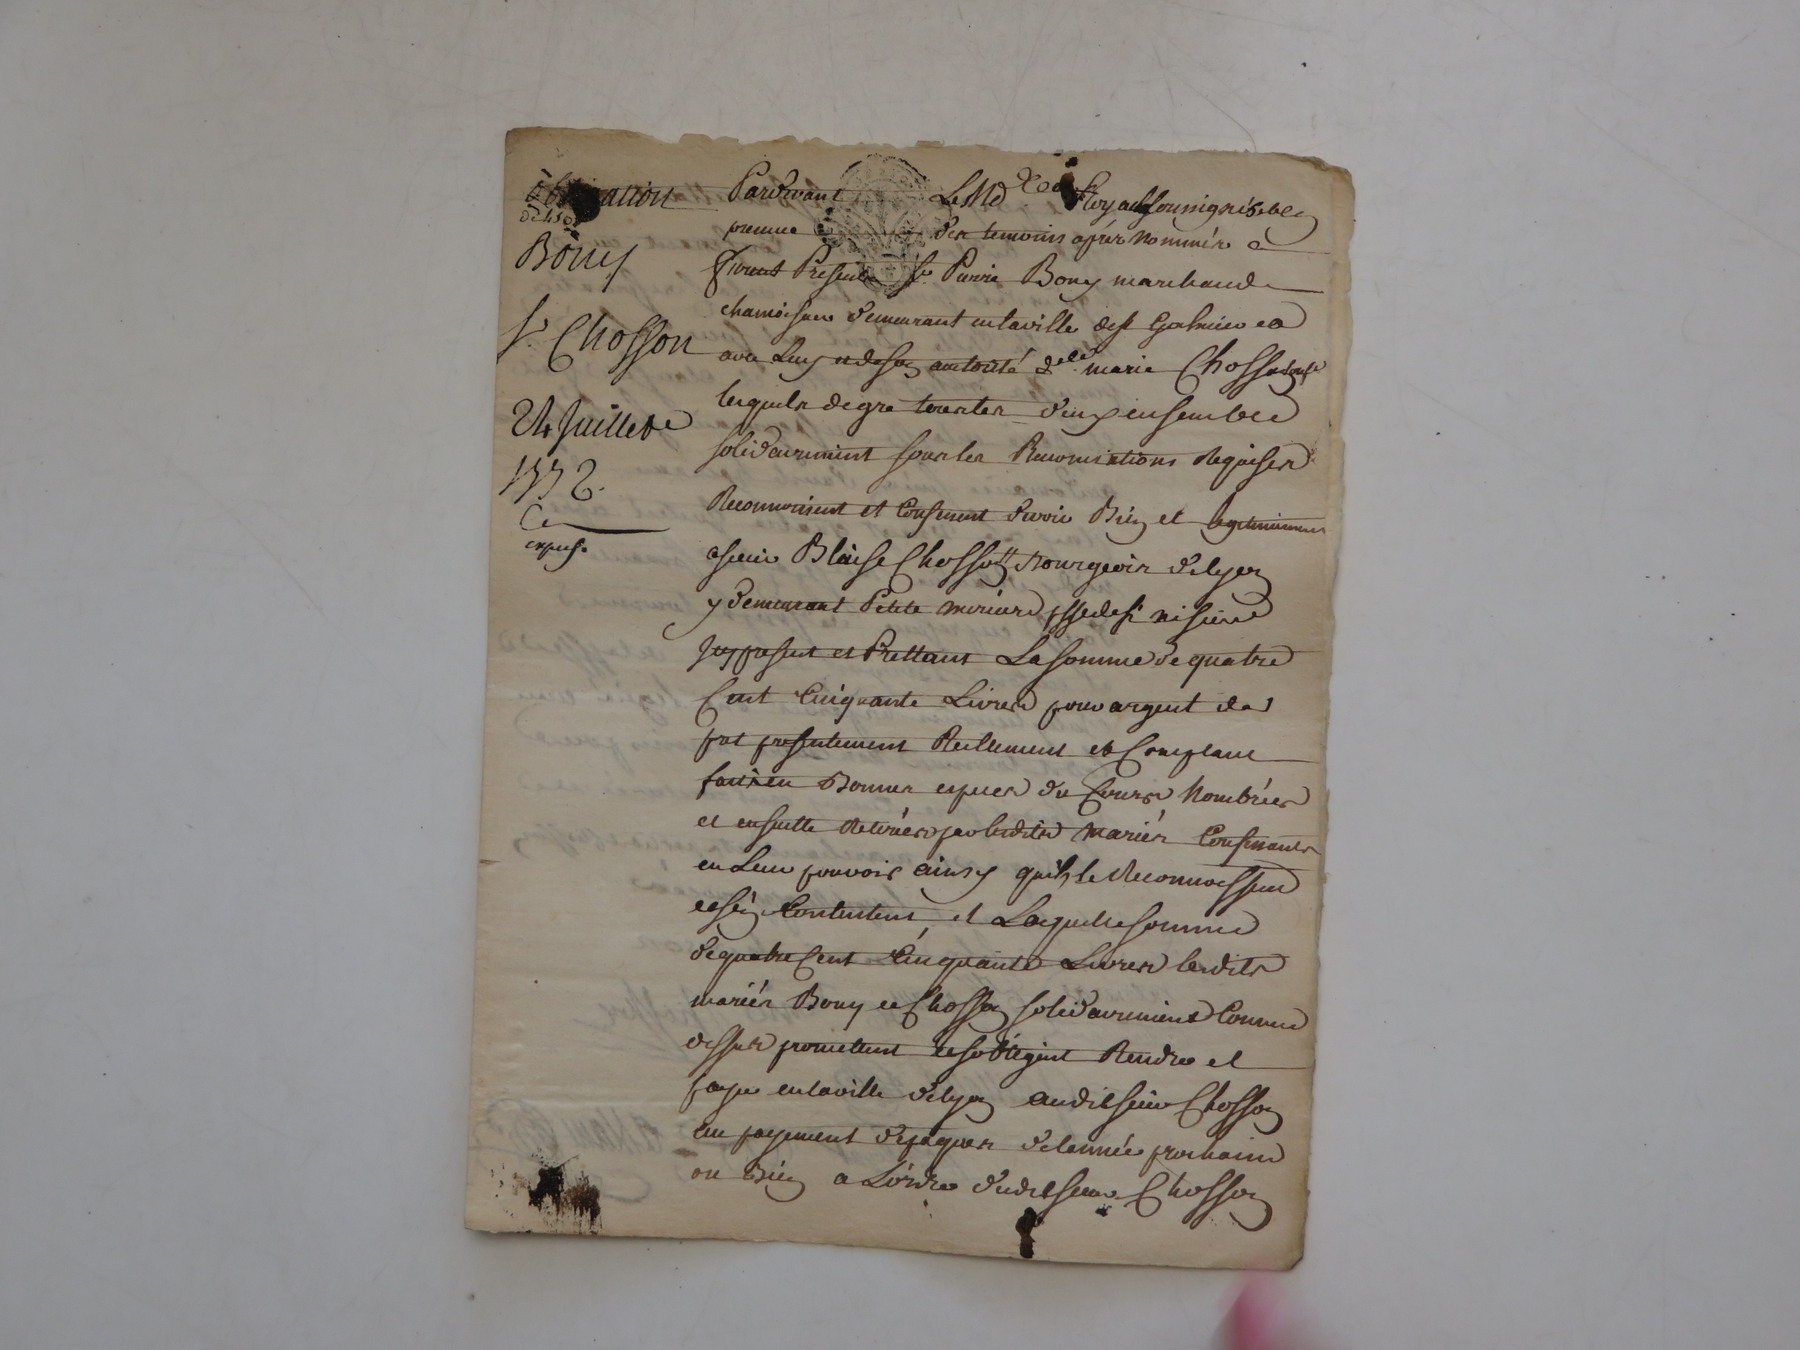 Obligation
de 450
Bouy
Sr Chosson
24 Juillet
1772.
expesé
Pardevant Le Nre Royal soussigné et en
presence des temoins après nommés
furent Presents Sr Pierre Bouy marchand
chamoiseur demeurant en la ville de St Galmier et
avec Luy et de son autorité dlle marie Chosson
lesquels de gré tous les deux ensemble
solidairement sous les Renonciations Requises
Reconnoissent et Confessent devoir Bien et legitimement
a sieur Blaise Chosson Bourgeois de lyon
y demeurant Petite paroisse de St nisier
Icy present et Prettant La somme de quatre
Cent Cinquante Livres pour argent de
pret presentement Reellement et Comptant
fait en Bonnes especes du Cours Nombrées
et ensuitte Retirées par lesdits mariés Confessants
en Leur pouvoir ainsy qu'ils le Reconnoissent
et s'en Contentent, et Laquelle somme
de quatre Cent Cinquante Livres lesdits
mariés Bouy et Chosson solidairement Comme
dessus promettent et s'obligent Rendre et
payer en la ville de lyon audit sieur Chosson
en payement de paques de l'année prochaine
ou Bien a L'ordre dudit sieur Chosson